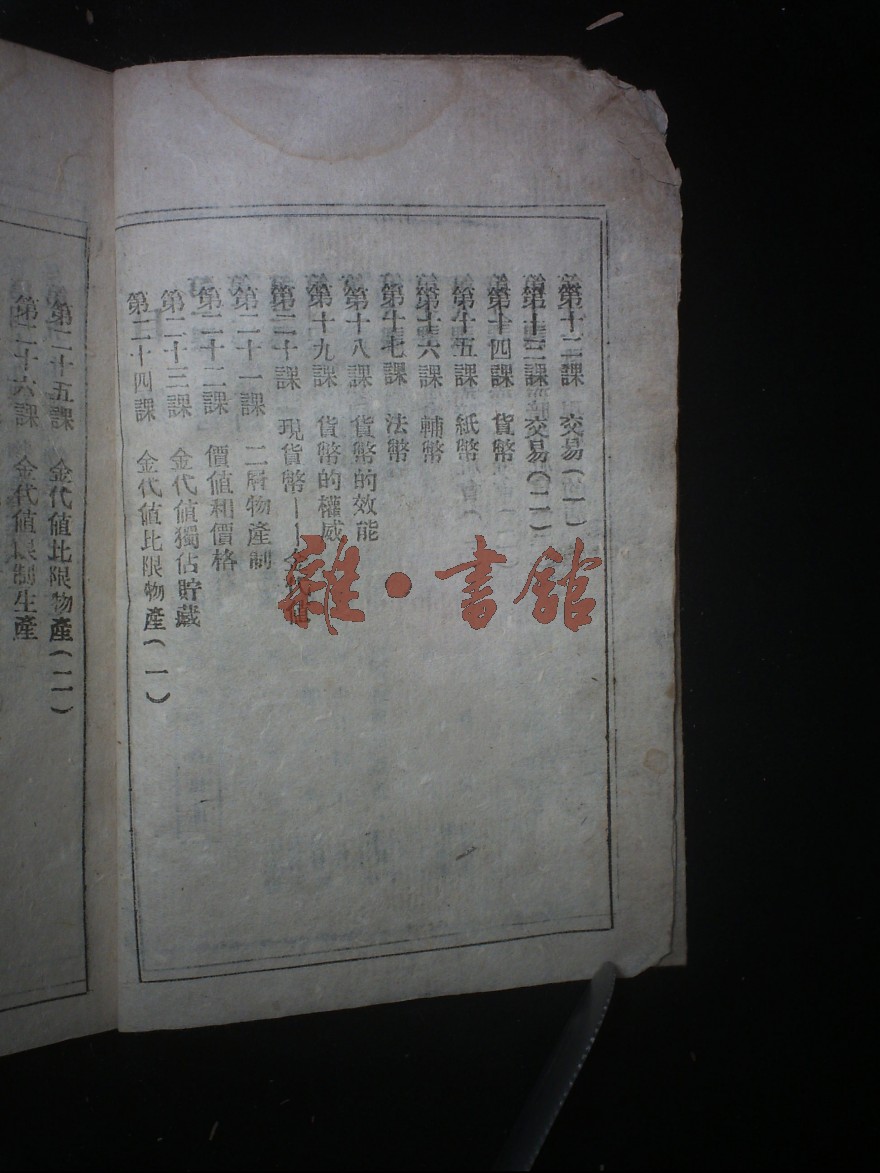 第十二課　交易(一)
第十三課　交易(二)
第十四課　貨幣
第十五課　紙幣
第十六課　輔幣
第十七課　法幣
第十八課　貨幣的效能
第十九課　貨幣的權威
第二十課　現貨幣——金代值
第二十一課　二層物產制
第二十二課　價值和價格
第二十三課　金代值獨佔貯藏
第二十四課　金代值比限物產(一)
第二十五課　金代值比限物產(二)
第二十六課　金代值限制生產
雜·書館